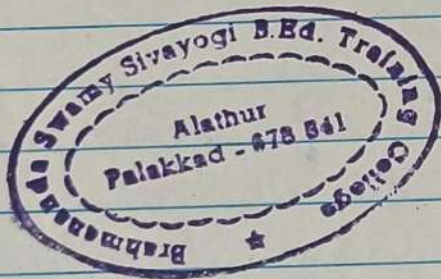 Brahmananda Swamy Sivayogi B.Ed. Training College
Alathur
Palakkad - 678 541